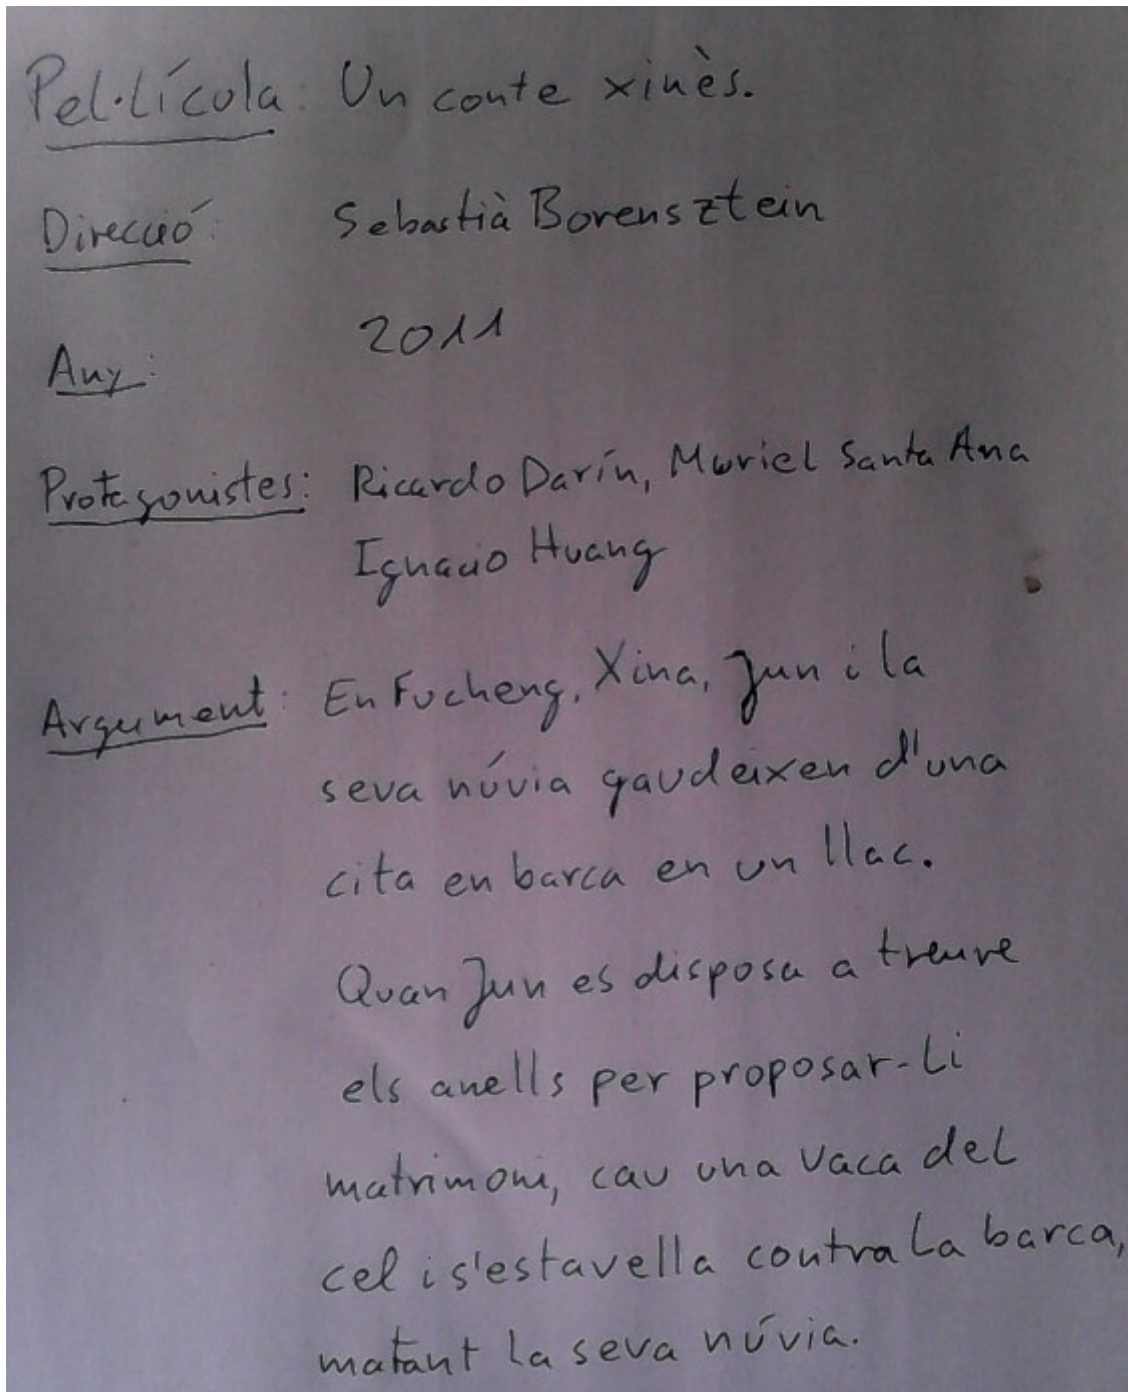 Pel·lícula: Un conte xinès.
Direcció: Sebastià Borensztein
Any: 2011
Protagonistes: Ricardo Darín, Muriel Santa Ana
Ignacio Huang
Argument: En Fucheng, Xina, Jun i la
seva núvia gaudeixen d'una
cita en barca en un llac.
Quan Jun es disposa a treure
els anells per proposar-li
matrimoni, cau una vaca del
cel i s'estavella contra la barca,
matant la seva núvia.